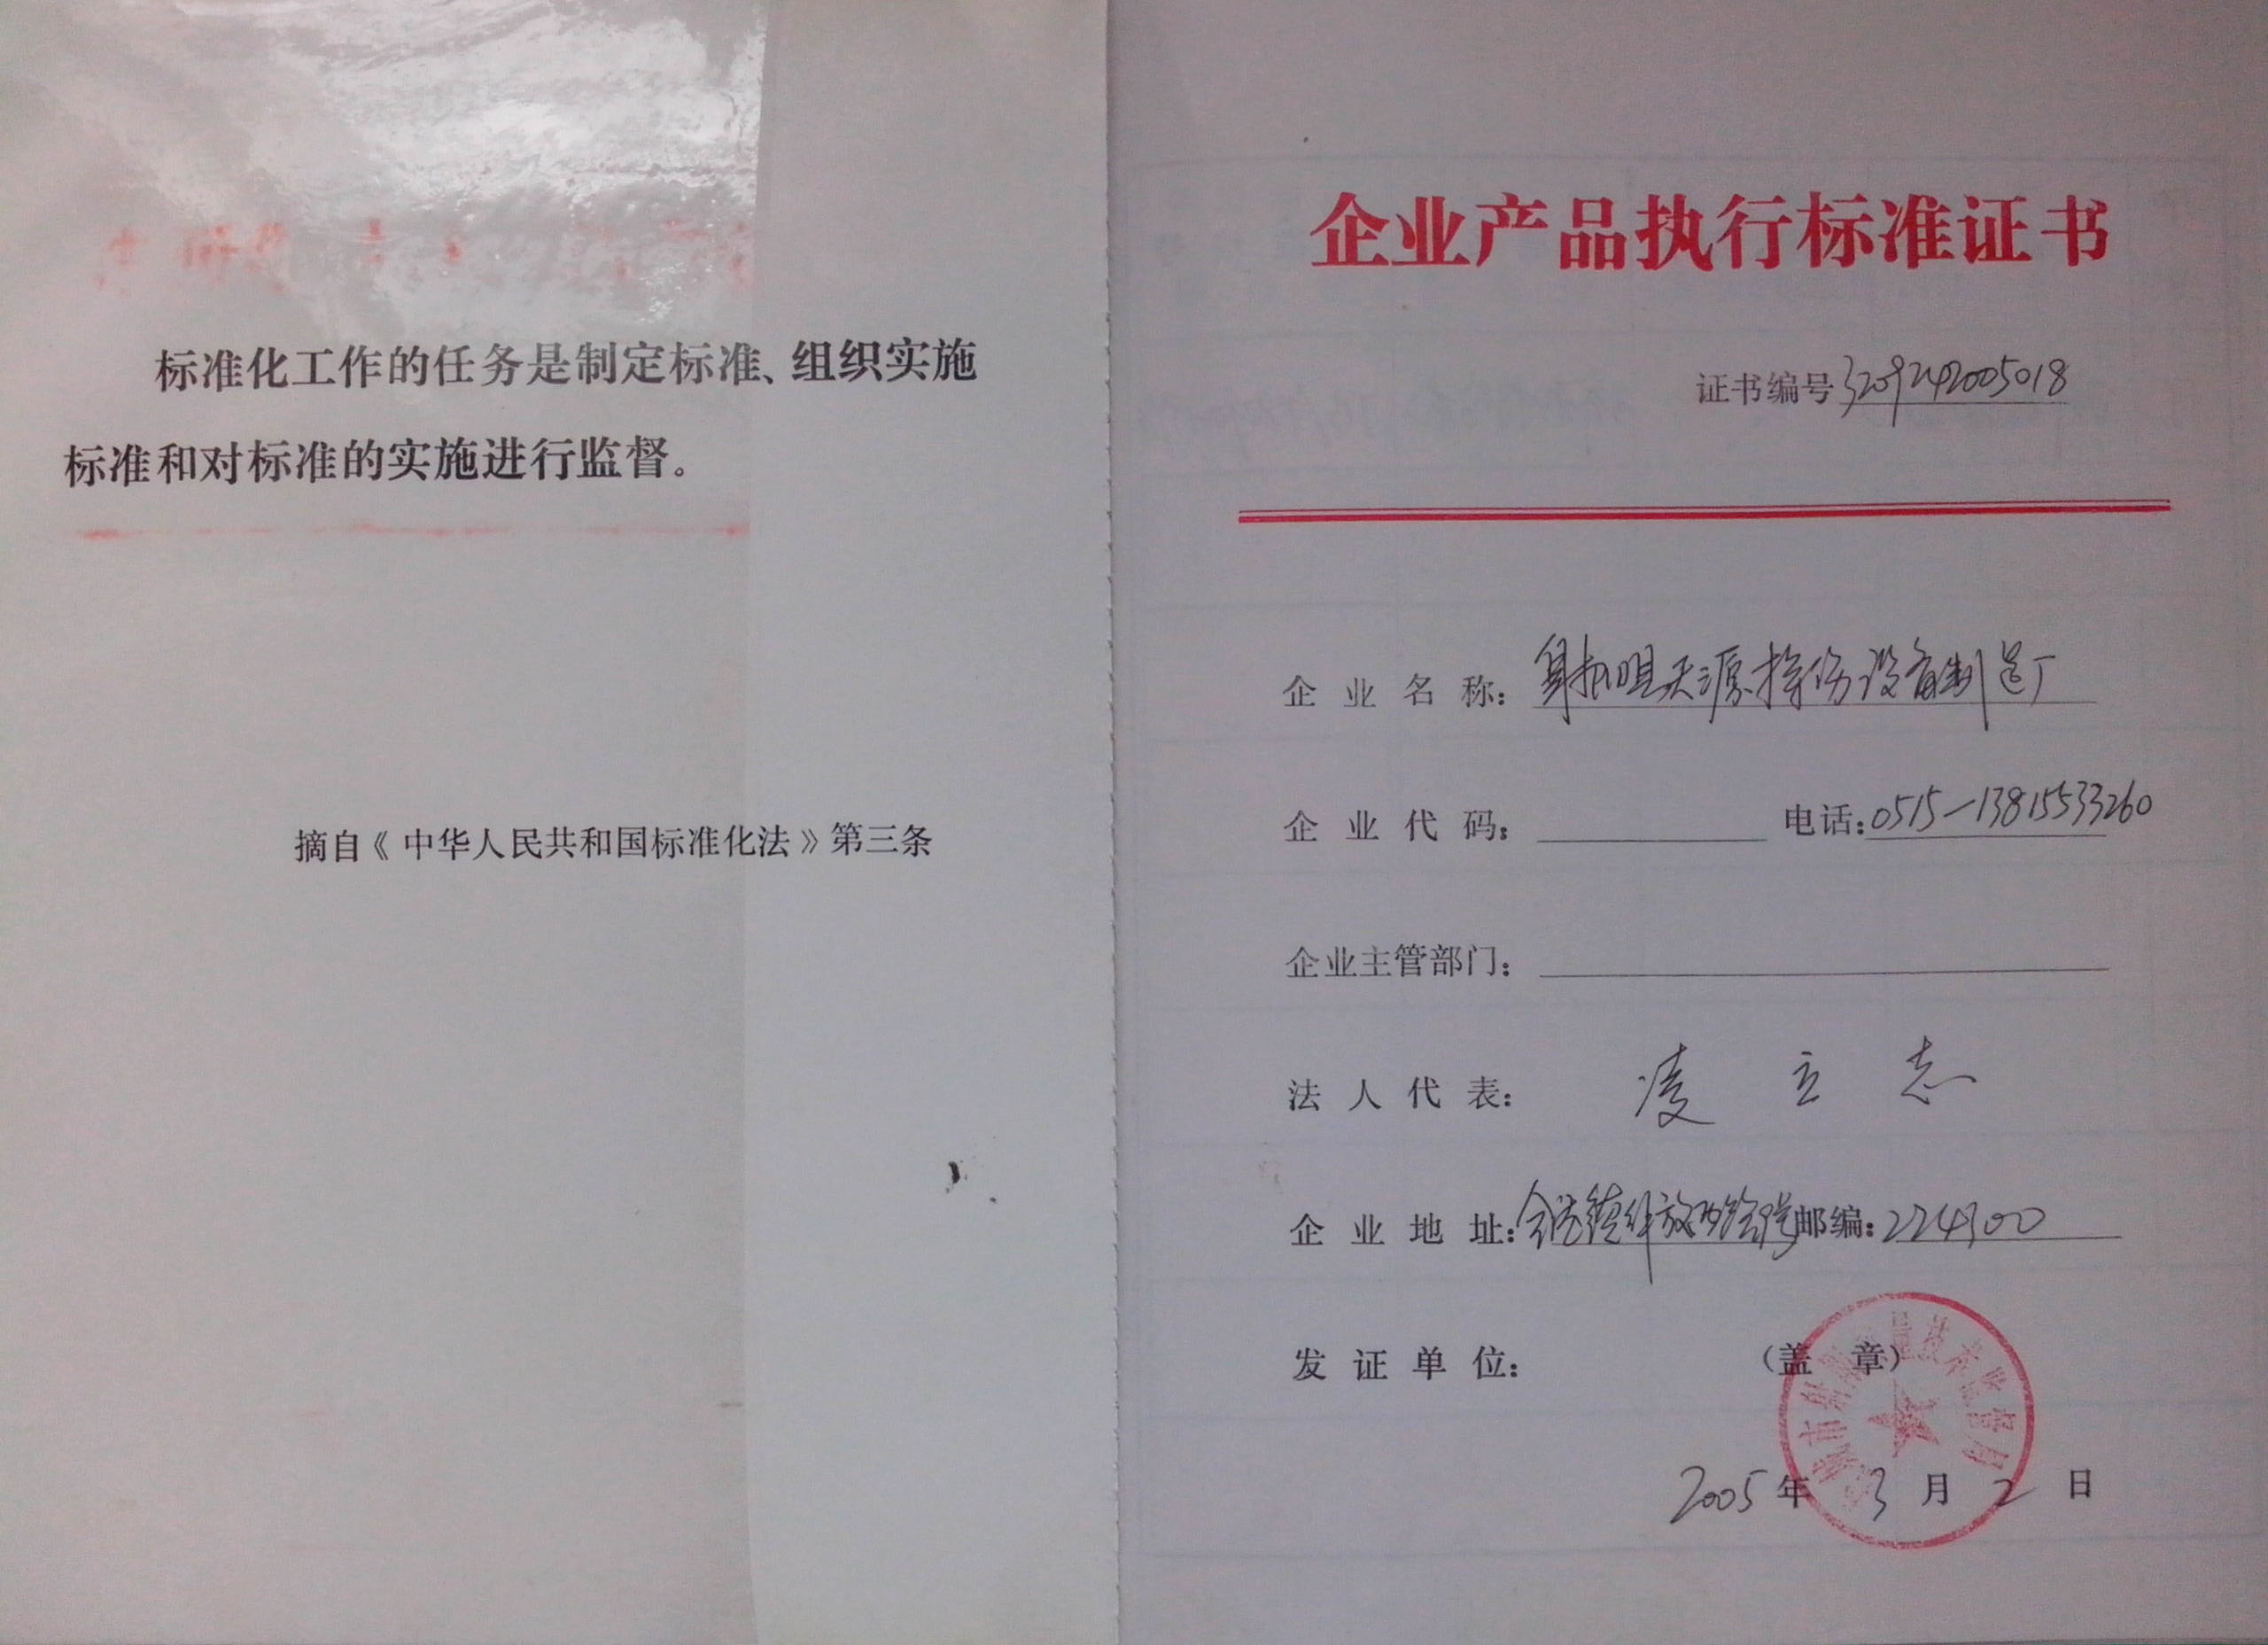 标准化工作的任务是制定标准、组织实施
标准和对标准的实施进行监督。
摘自《中华人民共和国标准化法》第三条
企业产品执行标准证书
证书编号 3209242005018
企业名称: 天源探伤设备制造厂
企业代码: 电话:0515-13815533260
企业主管部门:
法人代表: 凌立志
企业地址: 邮编:224300
发证单位: (盖章)
质量技术监督局
2005年3月2日